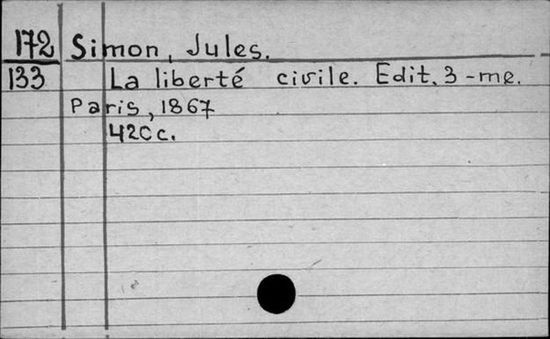 172 Simon, Jules.
133 La liberté civile. Edit. 3-me.
Paris, 1867
420 c.